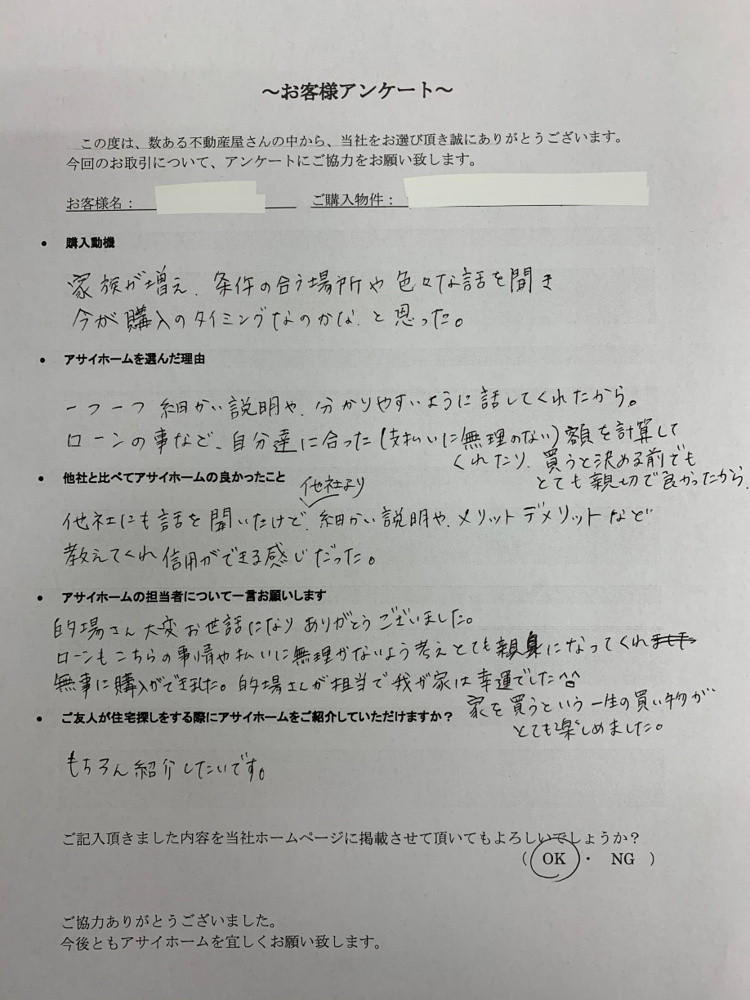 ～お客様アンケート～
この度は、数ある不動産屋さんの中から、当社をお選び頂き誠にありがとうございます。
今回のお取引について、アンケートにご協力をお願い致します。
お客様名： ご購入物件：
• 購入動機
家族が増え、条件の合う場所や色々な話を聞き
今が購入のタイミングなのかな、と思った。
• アサイホームを選んだ理由
一つ一つ細かい説明や、分かりやすいように話してくれたから。
ローンの事など、自分達に合った(支払いに無理のない)額を計算して
くれたり、買うと決める前でも
とても親切で良かったから、
• 他社と比べてアサイホームの良かったこと
他社より
他社にも話を聞いたけど、細かい説明や、メリットデメリットなど
教えてくれ信用ができる感じだった。
• アサイホームの担当者について一言お願いします
的場さん大変お世話になりありがとうございました。
ローンもこちらの事情や払いに無理がないよう考えとても親身になってくれ
無事に購入ができました。的場さんが担当で我が家は幸運でした^^
家を買うという一生の買い物が
とても楽しめました。
• ご友人が住宅探しをする際にアサイホームをご紹介していただけますか？
もちろん紹介したいです。
ご記入頂きました内容を当社ホームページに掲載させて頂いてもよろしいでしょうか？
（ OK ・ NG ）
ご協力ありがとうございました。
今後ともアサイホームを宜しくお願い致します。